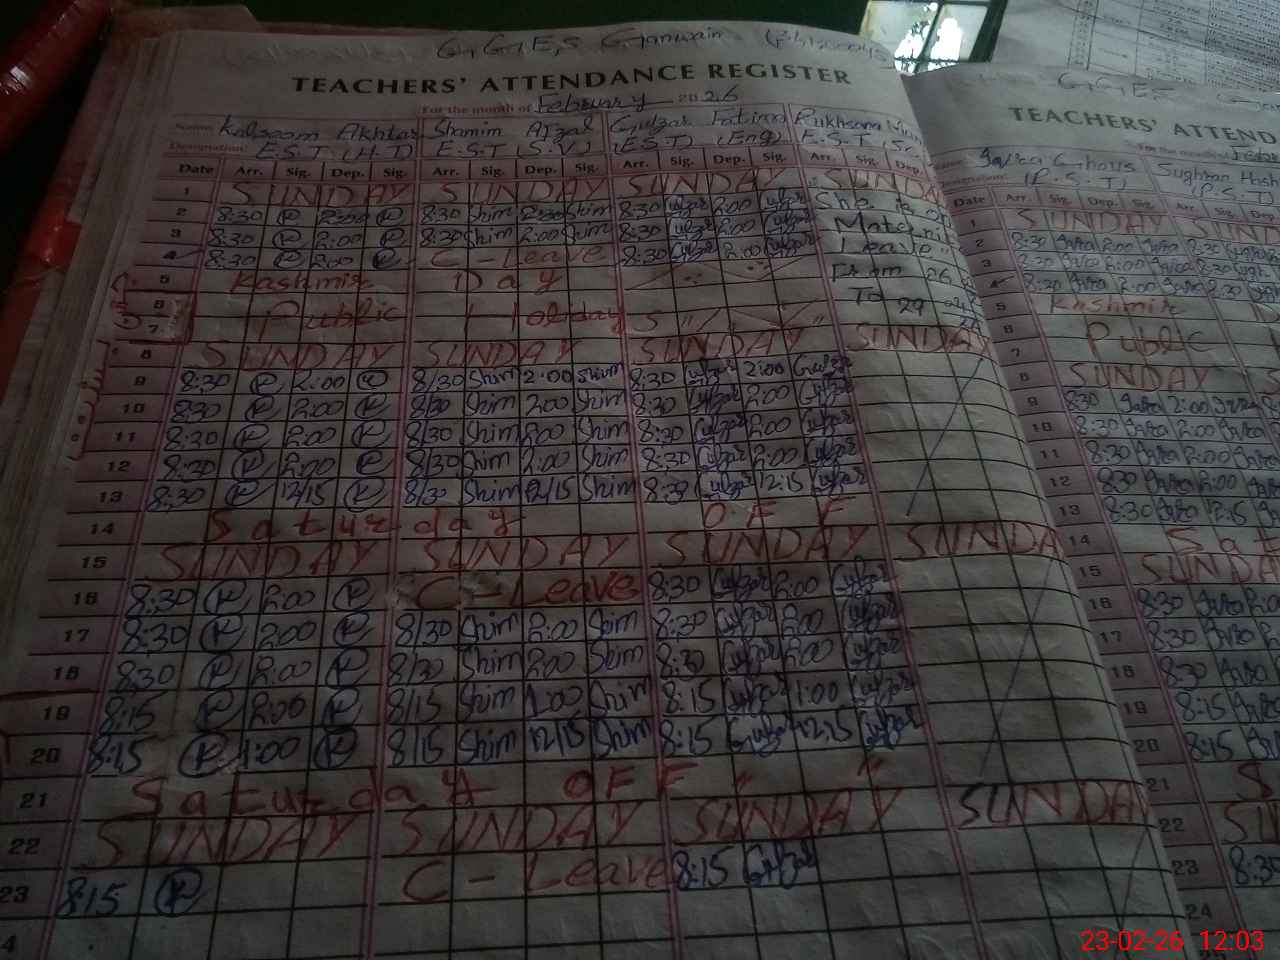 G.G.E.S Ganwain
TEACHERS' ATTENDANCE REGISTER
For the month of February 2026
Name: Kalsoom Akhtar Shamim Afzal Gulzar Fatima Rukhsana
Designation: E.S.T (H.T) E.S.T (S.V) (E.S.T) (Eng) E.S.T
Date Arr. Sig. Dep. Sig. Arr. Sig. Dep. Sig. Arr. Sig. Dep. Sig. Arr. Sig. Dep.
1 SUNDAY SUNDAY SUNDAY SUNDA
2 8:30 K 2:00 K 8:30 Shim 2:00 Shim 8:30 Gulzar 2:00 Gulzar She is on
3 8:30 K 2:00 K 8:30 Shim 2:00 Shim 8:30 Gulzar 2:00 Gulzar Materni
4 8:30 K 2:00 K C-Leave 8:30 Gulzar 2:00 Gulzar Leave
5 Kashmir Day From 26
6 Public Holidays To 29
7
8 SUNDAY SUNDAY SUNDAY SUNDAY
9 8:30 K 2:00 K 8/30 Shim 2:00 Shim 8:30 Gulzar 2:00 Gulzar
10 8:30 K 2:00 K 8/30 Shim 2:00 Shim 8:30 Gulzar 2:00 Gulzar
11 8:30 K 2:00 K 8/30 Shim 2:00 Shim 8:30 Gulzar 2:00 Gulzar
12 8:30 K 2:00 K 8/30 Shim 2:00 Shim 8:30 Gulzar 2:00 Gulzar
13 8:30 K 12/15 K 8/30 Shim 12/15 Shim 8:30 Gulzar 12:15 Gulzar
14 Saturday OFF
15 SUNDAY SUNDAY SUNDAY SUNDA
16 8:30 K 2:00 K C-Leave 8:30 Gulzar 2:00 Gulzar
17 8:30 K 2:00 K 8/30 Shim 2:00 Shim 8:30 Gulzar 2:00 Gulzar
18 8:30 K 2:00 K 8/30 Shim 2:00 Shim 8:30 Gulzar 2:00 Gulzar
19 8:15 K 2:00 K 8/15 Shim 1:00 Shim 8:15 Gulzar 1:00 Gulzar
20 8:15 K 1:00 K 8/15 Shim 12/15 Shim 8:15 Gulzar 12:15 Gulzar
21 Saturday OFF " "
22 SUNDAY SUNDAY SUNDAY SUNDAY
23 8:15 K C-Leave 8:15 Gulzar
4
G.G.E.S
TEACHERS' ATTEND
For the month of
Ghous Sughran
(P.S.T) (P.S.T)
Date Arr. Sig. Dep. Sig. Arr. Sig.
1 SUNDAY SUND
2 8:30 2:00 8:30
3 8:30 2:00 8:30
4 8:30 2:00 8:30
5 Kashmir
6 Public
7
8 SUNDAY SU
9 8:30 2:00
10 8:30 2:00
11 8:30 2:00
12 8:30 2:00
13 8:30 12:15
14 Sat
15 SUNDA
16 8:30
17 8:30
18 8:30
19 8:15
20 8:15
21 S
22 SU
23 8:3
24
23-02-26 12:03